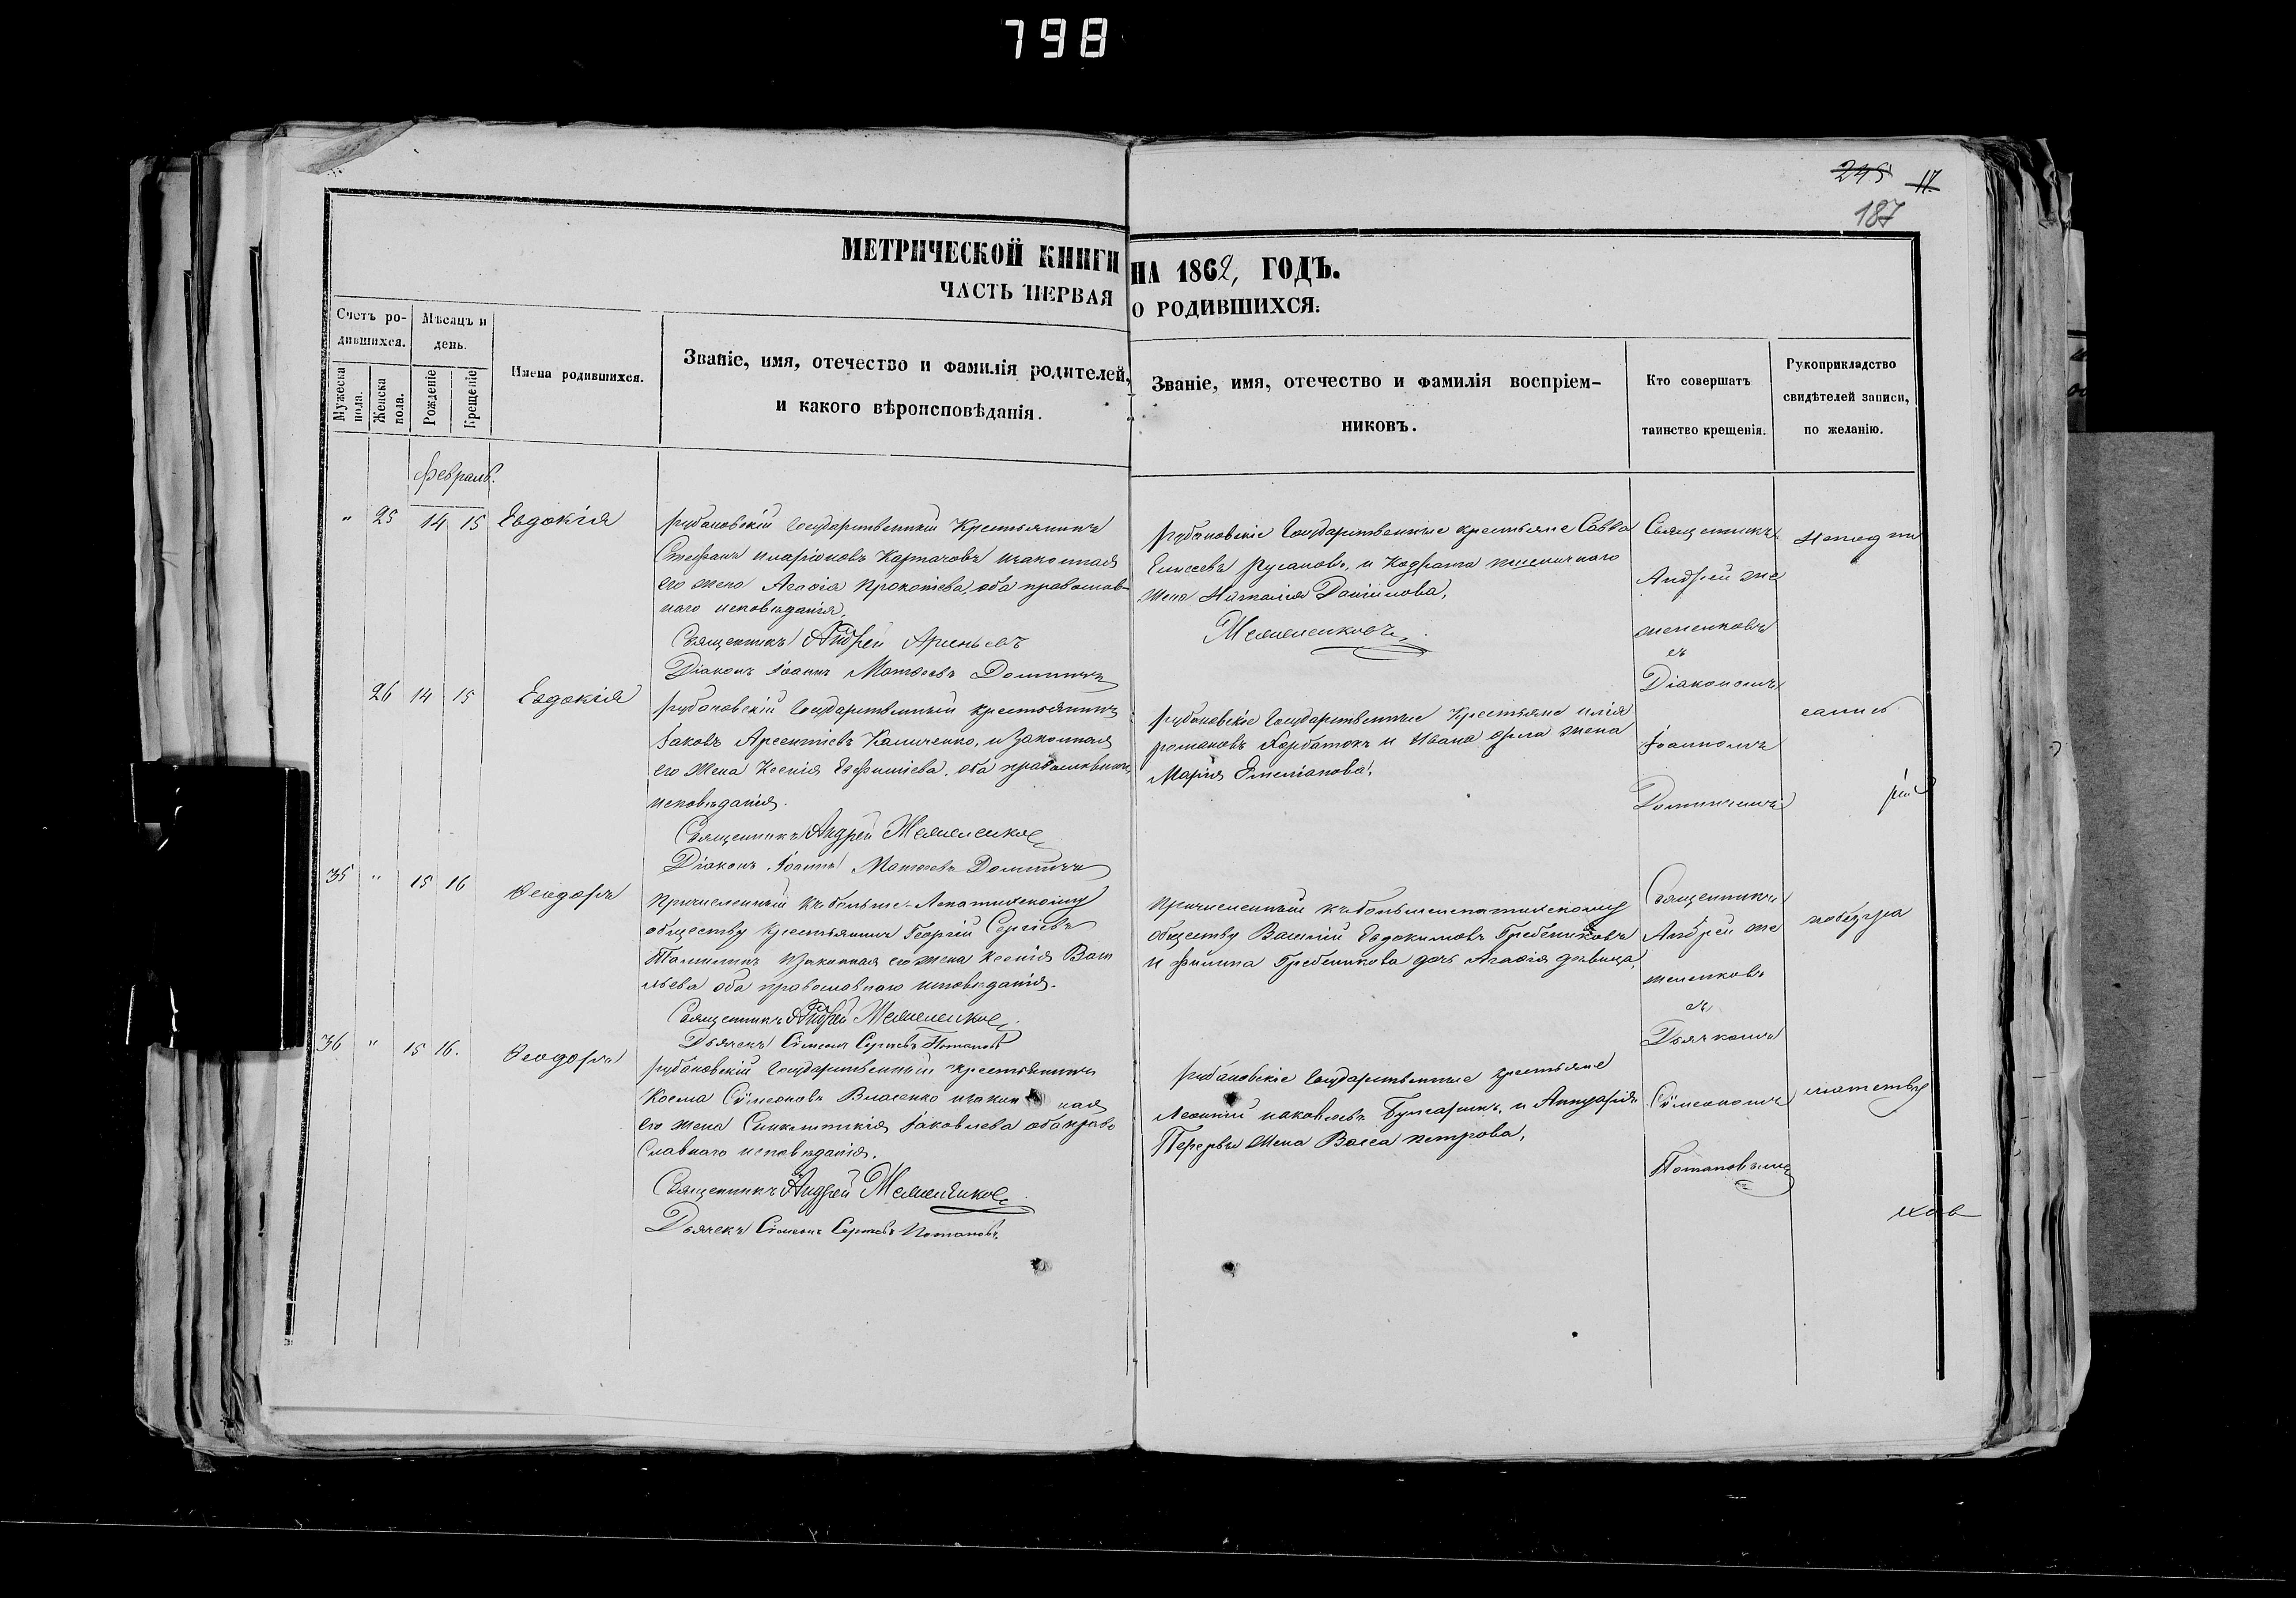 798
245 17
187
МЕТРИЧЕСКОЙ КНИГИ НА 1862, ГОДЪ.
ЧАСТЬ ПЕРВАЯ О РОДИВШИХСЯ.
Счетъ родившихся.
Мужеска пола.
Женска пола.
Мѣсяцъ и день.
Рожденіе
Крещеніе
Имена родившихся.
Званіе, имя, отечество и фамилія родителей,
и какого вѣроисповѣданія.
Званіе, имя, отечество и фамилія воспріем-
никовъ.
Кто совершатъ
таинство крещенія.
Рукоприкладство
свидѣтелей записи,
по желанію.
Февраль.
" 25 14 15 Евдокія
рубановскій Государственный Крестьянинъ
Стефанъ иларіоновъ изаконная
его жена Агафія Прокопіева, оба православ-
наго исповѣданія,
Священникъ Андрей
Діаконъ Іоаннъ Матѳеевъ Доминичъ
рубановскіе Государственные крестьяне Савва
Елисеевъ Русановъ, и Кодрата пшеничнаго
жена Наталія Даніилова,
Священникъ
Андрей
съ
Діакономъ
Іоанномъ
26 14 15 Евдокія
рубановскій Государственный крестьянинъ
Іаковъ Арсентіевъ Каличенко, изаконная
его жена Ксенія Евфиміева, оба православнаго
исповѣданія.
Священникъ Андрей
Діаконъ Іоаннъ Матѳеевъ Доминичъ
рубановскіе Государственные Крестьяне илія
романовъ Горбатокъ и Ивана орла жена
Марія Емеліанова,
35 " 15 16 Ѳеодоръ
причисленный къ больше-Лепатихскому
обществу крестьянинъ Георгій Сергіевъ
изаконная его жена Ксенія Васи
льева оба православнаго исповѣданія.
Священникъ Андрей
Дьячекъ Сімеонъ Сергѣевъ Потаповъ
причисленный къ большелепатихскому
обществу Василій Евдокимовъ Гребениковъ
и филипа Гребеникова дочь Агафія дѣвица,
Священникъ
Андрей
съ
Дьячкомъ
Сімеономъ
Потаповымъ
36 " 15 16. Ѳеодоръ
рубановскій Государственный крестьянинъ
Косма Сімеоновъ Власенко изаконная
его жена Синклитикія Іаковлева оба право
славнаго исповѣданія.
Священникъ Андрей
Дьячекъ Сімеонъ Сергѣевъ Потаповъ
рубановскіе Государственные крестьяне
Леонтій иаковлевъ и Аннуарія
Перервы жена Васса петрова,